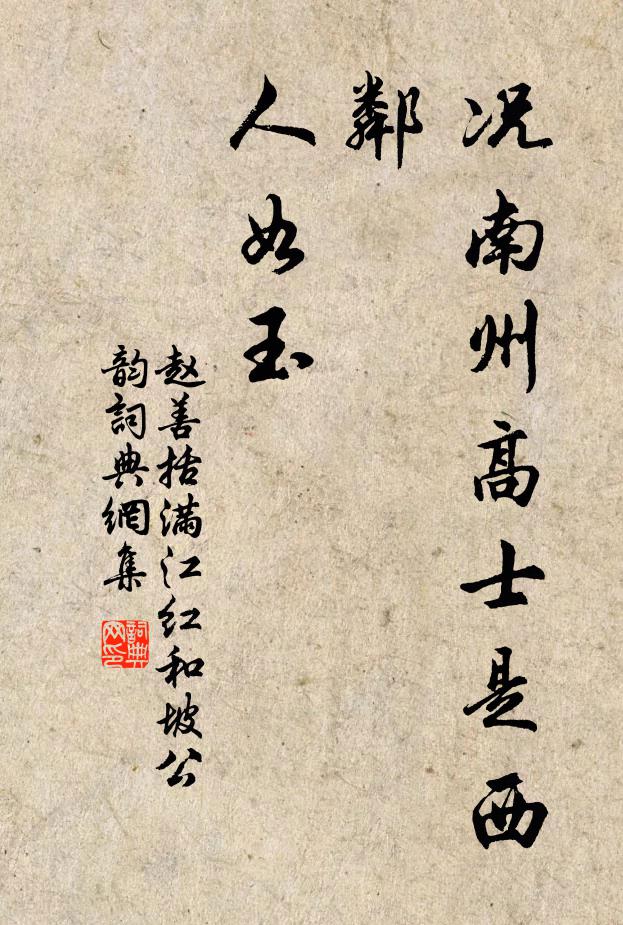 况南州高士是西
鄰
人如玉
赵善括满江红和坡公
韵詞典網集
詞典
网印